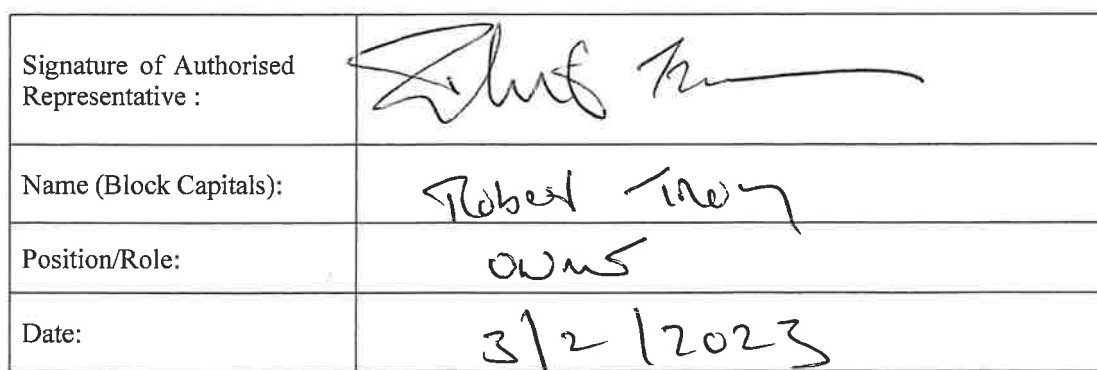 Signature of Authorised
Representative :
Name (Block Capitals): Robert Troy
Position/Role: owner
Date: 3/2/2023